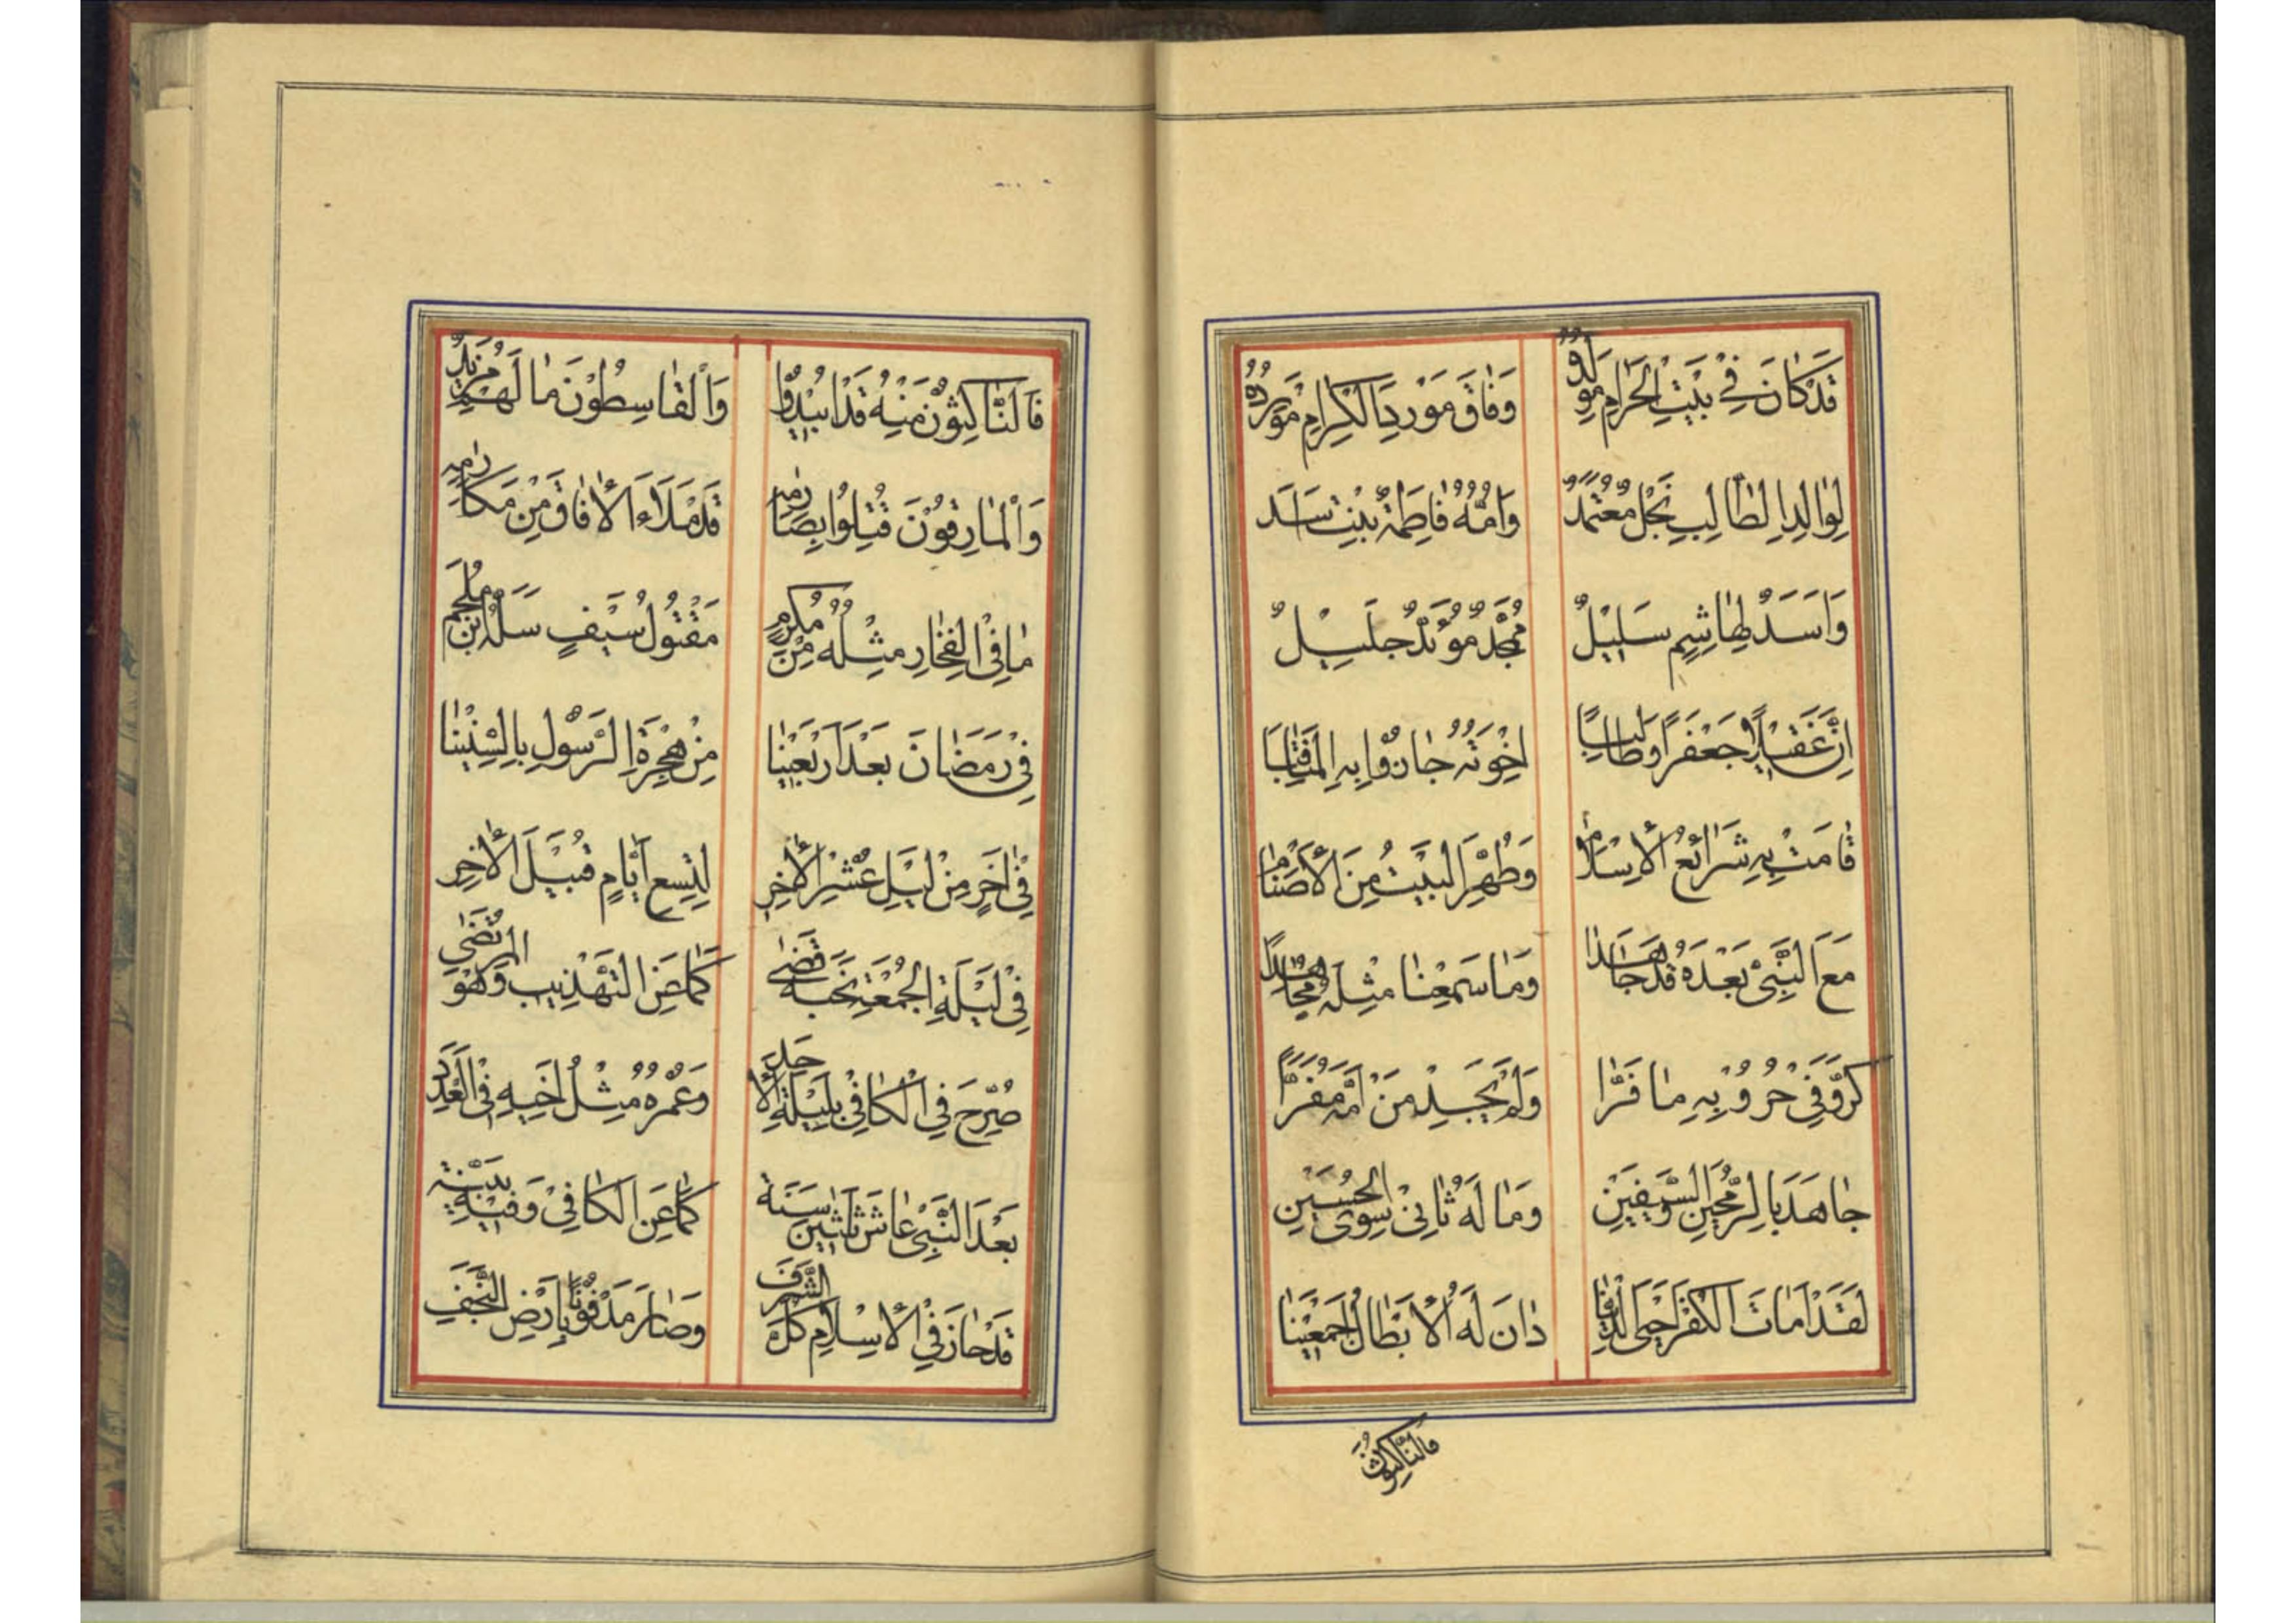 قَدْ كَانَ فِي بَيْتِ الْحَرَامِ مَوْلَدُهُ وَفَاقَ مَوْرِدَ الْكِرَامِ مَوْرِدُهُ
لِوَالِدِ الطَّالِبِ نَجْلٌ مُعْتَمَدٌ وَاُمُّهُ فَاطِمَةٌ بِنْتُ اَسَدَ
وَاَسَدٌ لِهَاشِمٍ سَلِيْلٌ مُمَجَّدٌ مُؤَيَّدٌ جَلِيْلٌ
اِنَّ عَقِيْلًا جَعْفَرًا وَطَالِبًا اِخْوَتُهُ حَازُوا بِهِ الْمَنَاقِبَا
قَامَتْ بِهِ شَرَائِعُ الْاِسْلَامِ وَطُهِّرَ الْبَيْتُ مِنَ الْاَصْنَامِ
مَعَ النَّبِيِّ بَعْدَهُ قَدْ جَاهَدَا وَمَا سَمِعْنَا مِثْلَهُ مُجَاهِدًا
كَرَّ وَفِي حُرُوْبِهِ مَا فَرَّا وَلَمْ يَجِدْ مَنْ اَمَّهُ مَفَرًّا
جَاهَدَ بِالرُّمْحَيْنِ وَالسَّيْفَيْنِ وَمَا لَهُ ثَانِيْ سِوَى الْحُسَيْنِ
لَقَدْ اَمَاتَ الْكُفْرَ اَحْيَى الدِّيْنَا دَانَ لَهُ الْاَبْطَالُ اَجْمَعِيْنَا
فَالنَّاكِثُوْنَ
فَالنَّاكِثُوْنَ مِنْهُ قَدْ اُبِيْدُوْا وَالْقَاسِطُوْنَ مَا لَهُمْ مَزِيْدٌ
وَالْمَارِقُوْنَ قُتِلُوْا بِصَارِمِهِ قَدْ مَلَاَءَ الْاٰفَاقَ مِنْ مَكَارِمِهِ
مَا فِي الْفِخَارِ مِثْلُهُ مِنْ مُكْرَمٍ مَقْتُوْلُ سَيْفٍ سَلَّهُ ابْنُ مُلْجَمَ
فِيْ رَمَضَانَ بَعْدَ اَرْبَعِيْنَا مِنْ هِجْرَةِ الرَّسُوْلِ بِالسِّنِيْنَا
فِيْ اٰخِرٍ مِنْ لَيْلِ عَشْرِ الْاٰخِرِ لِتِسْعِ اَيَّامٍ قُبَيْلَ الْاٰخِرِ
فِيْ لَيْلَةِ الْجُمْعَةِ نَحْبَهُ قَضٰى كَمَا عَنِ التَّهْذِيْبِ وَهْوَ الْمُرْتَضٰى
صُرِّحَ فِي الْكَافِيْ بِلَيْلَةِ الْاَحَدِ وَعُمْرُهُ مِثْلُ اَخِيْهِ فِي الْعَدَدِ
بَعْدَ النَّبِيِّ عَاشَ ثَلٰثِيْنَ سَنَةً كَمَا عَنِ الْكَافِيْ وَفِيْهِ بَيِّنَةٌ
قَدْ حَازَ فِي الْاِسْلَامِ كُلَّ الشَّرَفِ وَصَارَ مَدْفُوْنًا بِاَرْضِ النَّجَفِ